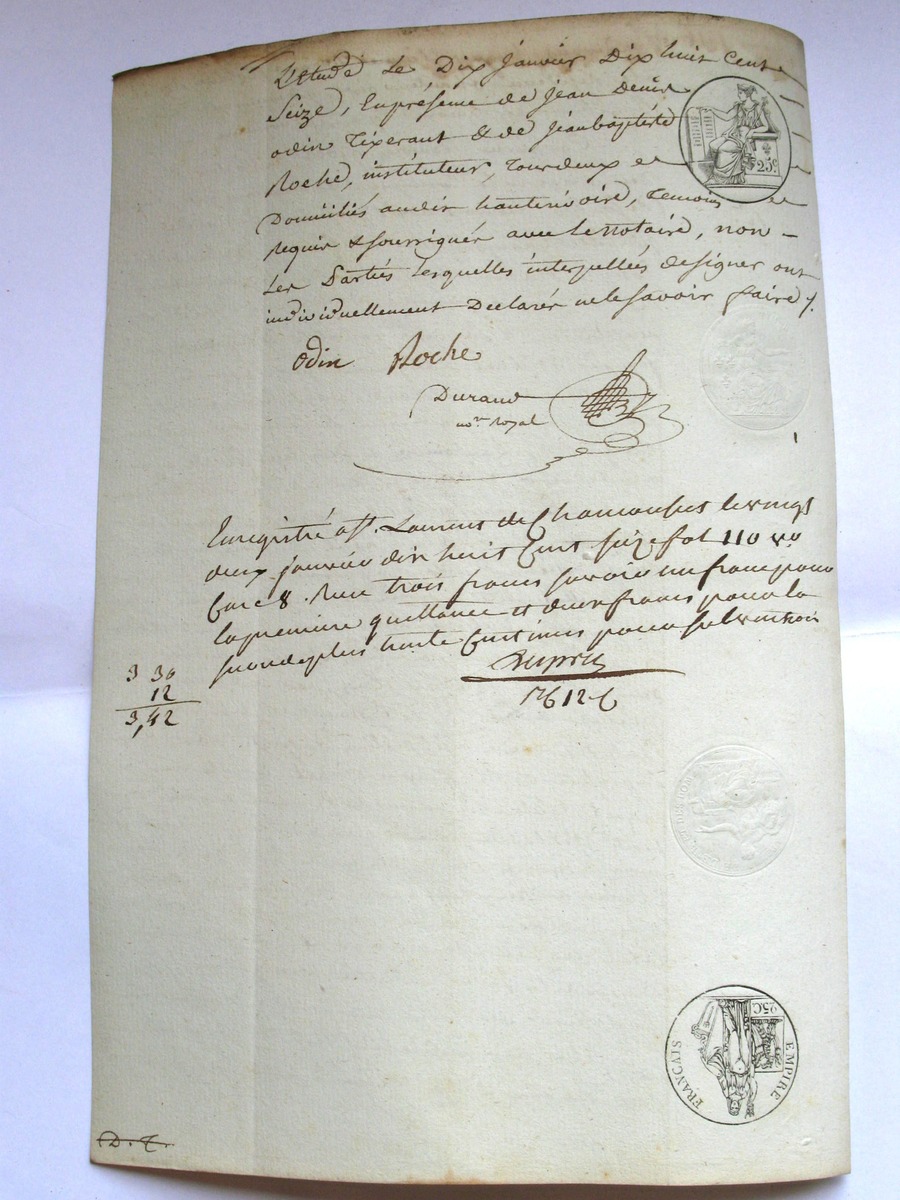 L'étude Le Dix Janvier Dix huit Cent
Seize, En présence de Jean Denis
odin Tixerant & de Jean baptiste
Roche, instituteur, Tous deux et
Domiciliés audit hauterivoire, Temoins
requis & soussignés avec le notaire, non
Les Parties Lesquelles interpellées de signer ont
individuellement Declarés ne le savoir faire
25c
odin Roche
Durand
nore Royal
Enregistré a St. Laurent de Chamousset le vingt
deux janvier dix huit Cent seize fol 110 vo
Case 8. Reçu trois francs savoir un franc pour
la premiere quittance et deux francs pour la
seconde plus trente Centimes pour subvention
3 30
12
3,42
EMPIRE
FRANÇAIS
25C
D. T.